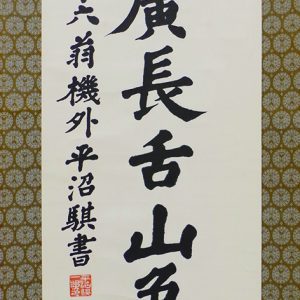 廣長舌山
六翁機外平沼騏書